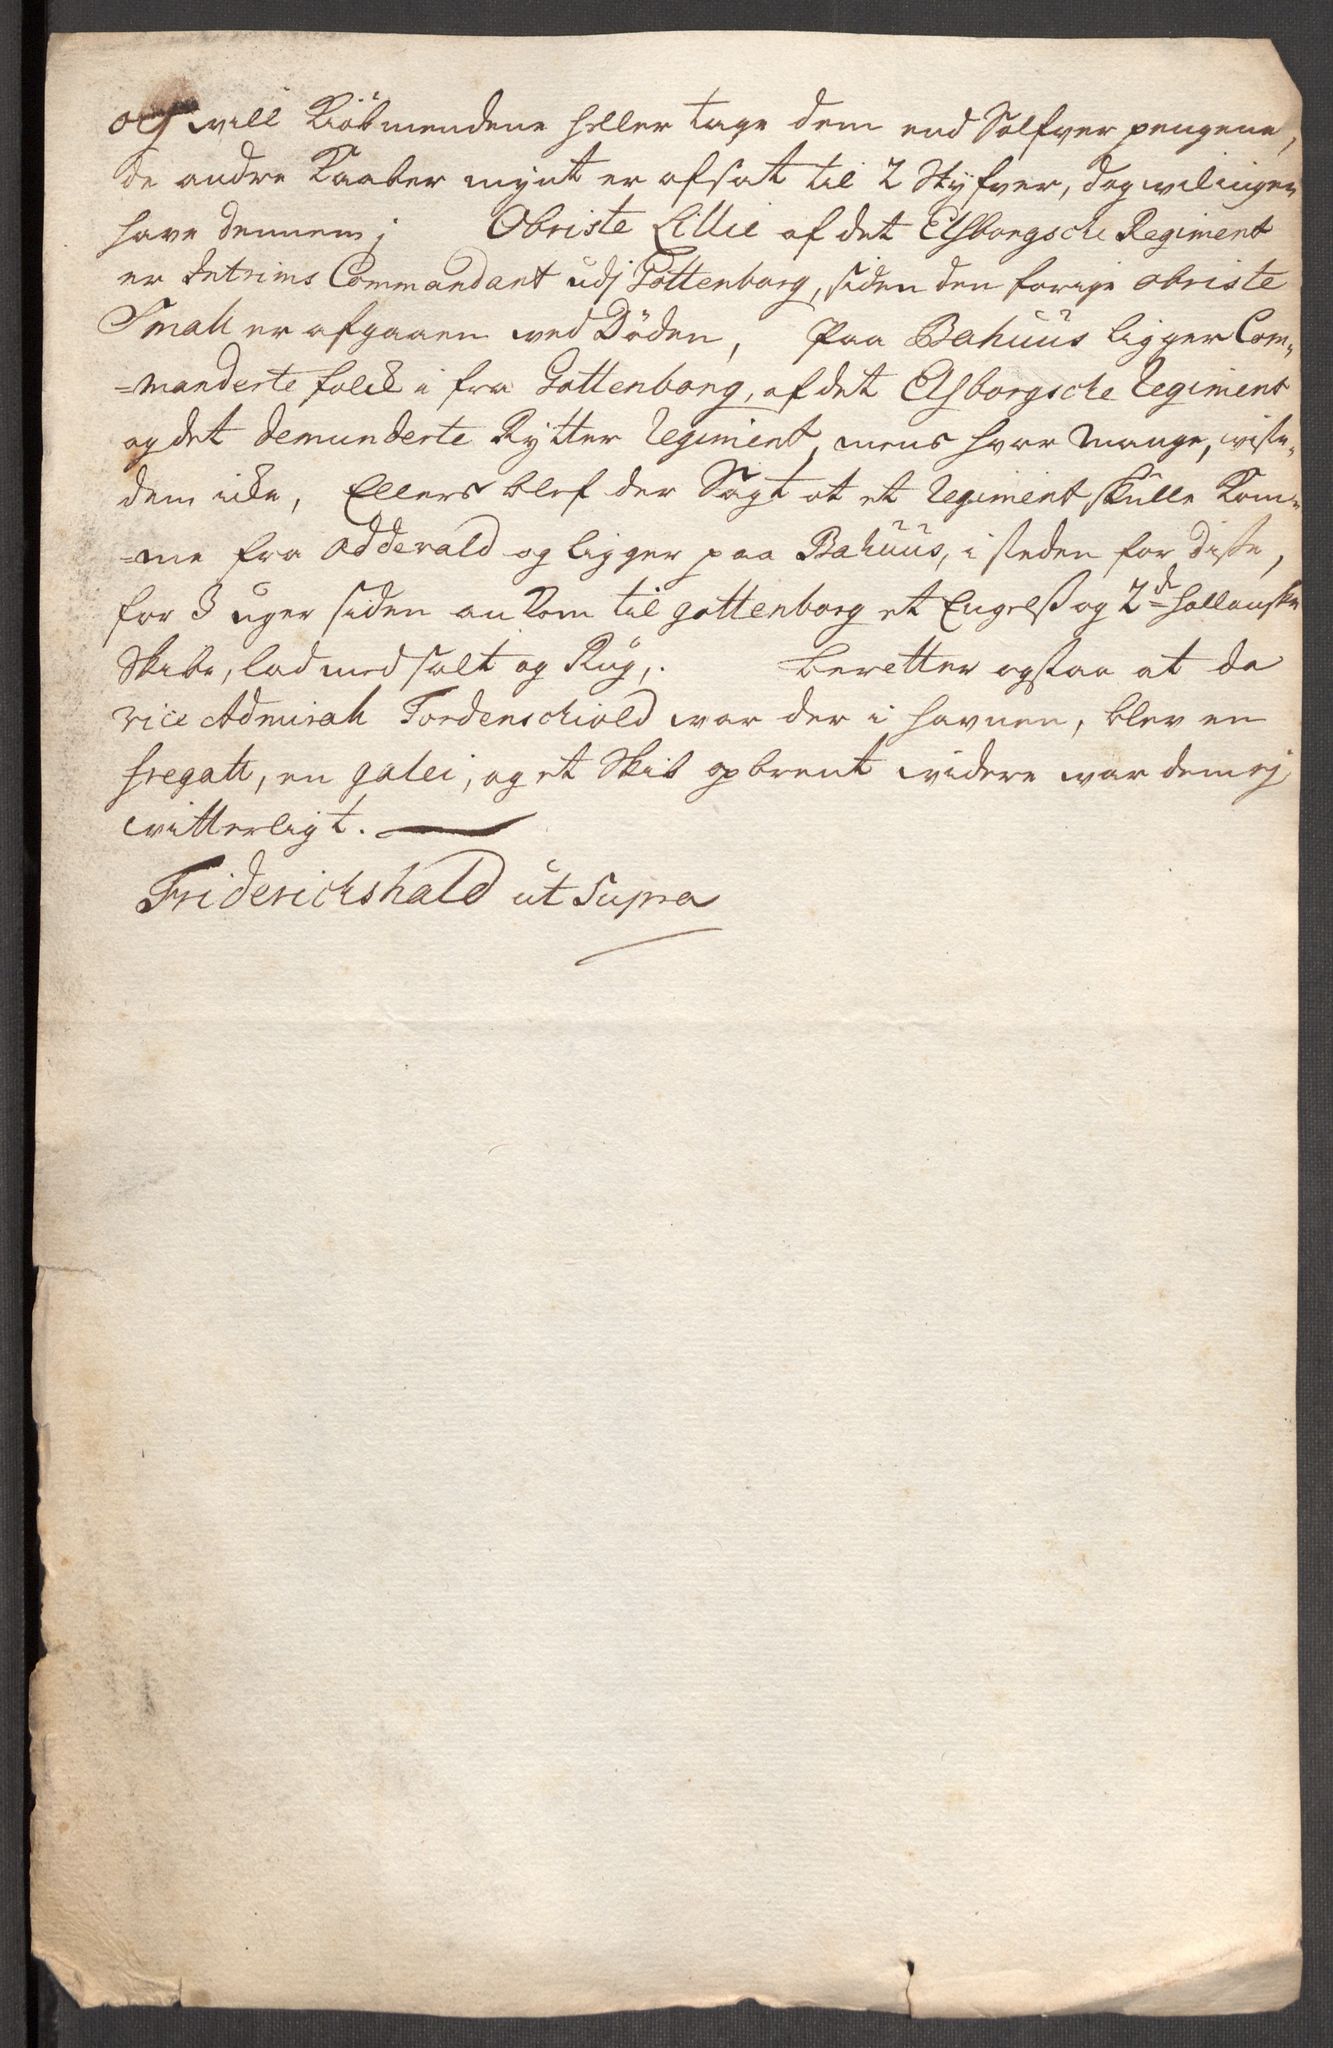 och will Kiöbmendene heller tage dem end Sølfver pengene,
de andre Kaaber mynt er afsat til 2 Styfver, dog wil ingen
have dennem; Obriste Lillie af det Elsborgsche Regiment
er Intrims Commandant udj Gottenborg, siden den forige obriste
Smak er afgaaen ved Döden, Paa Bahuus ligger Com„
=manderte folck i fra Gottenborg, af det Elsborgsche Regiment
og det demunderte Rytter Regiment, mens hvor mange, viste„
dem icke, Ellers blef der Sagt at et Regiment skulle Kom„
=me fra Oddevald og ligger paa Bahuus, i steden for disse,
for 3 uger siden an Kom til gottenborg et Engelsk og 2de hollanske
Skibe, lad med salt og Rug,. beretter ogsaa at da
vice Admirah Tordenschiold war der i havnen, blev en
fregatt, en galei, og et Skib opbrent videre war dem ej
vitterligt.
Friderichshald ut Supra